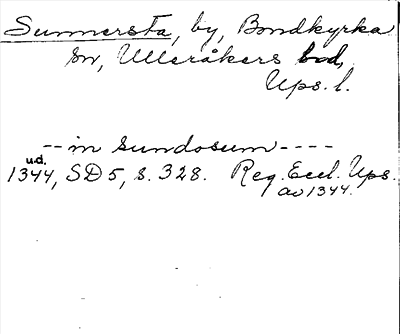 Sunnersta, by, Bondkyrka
sn, Ulleråkers hd,
Ups. l.
-- in sundosum ----
u.d.
1344, SD 5, s. 328. Reg. Eccl. Ups.
av 1344.